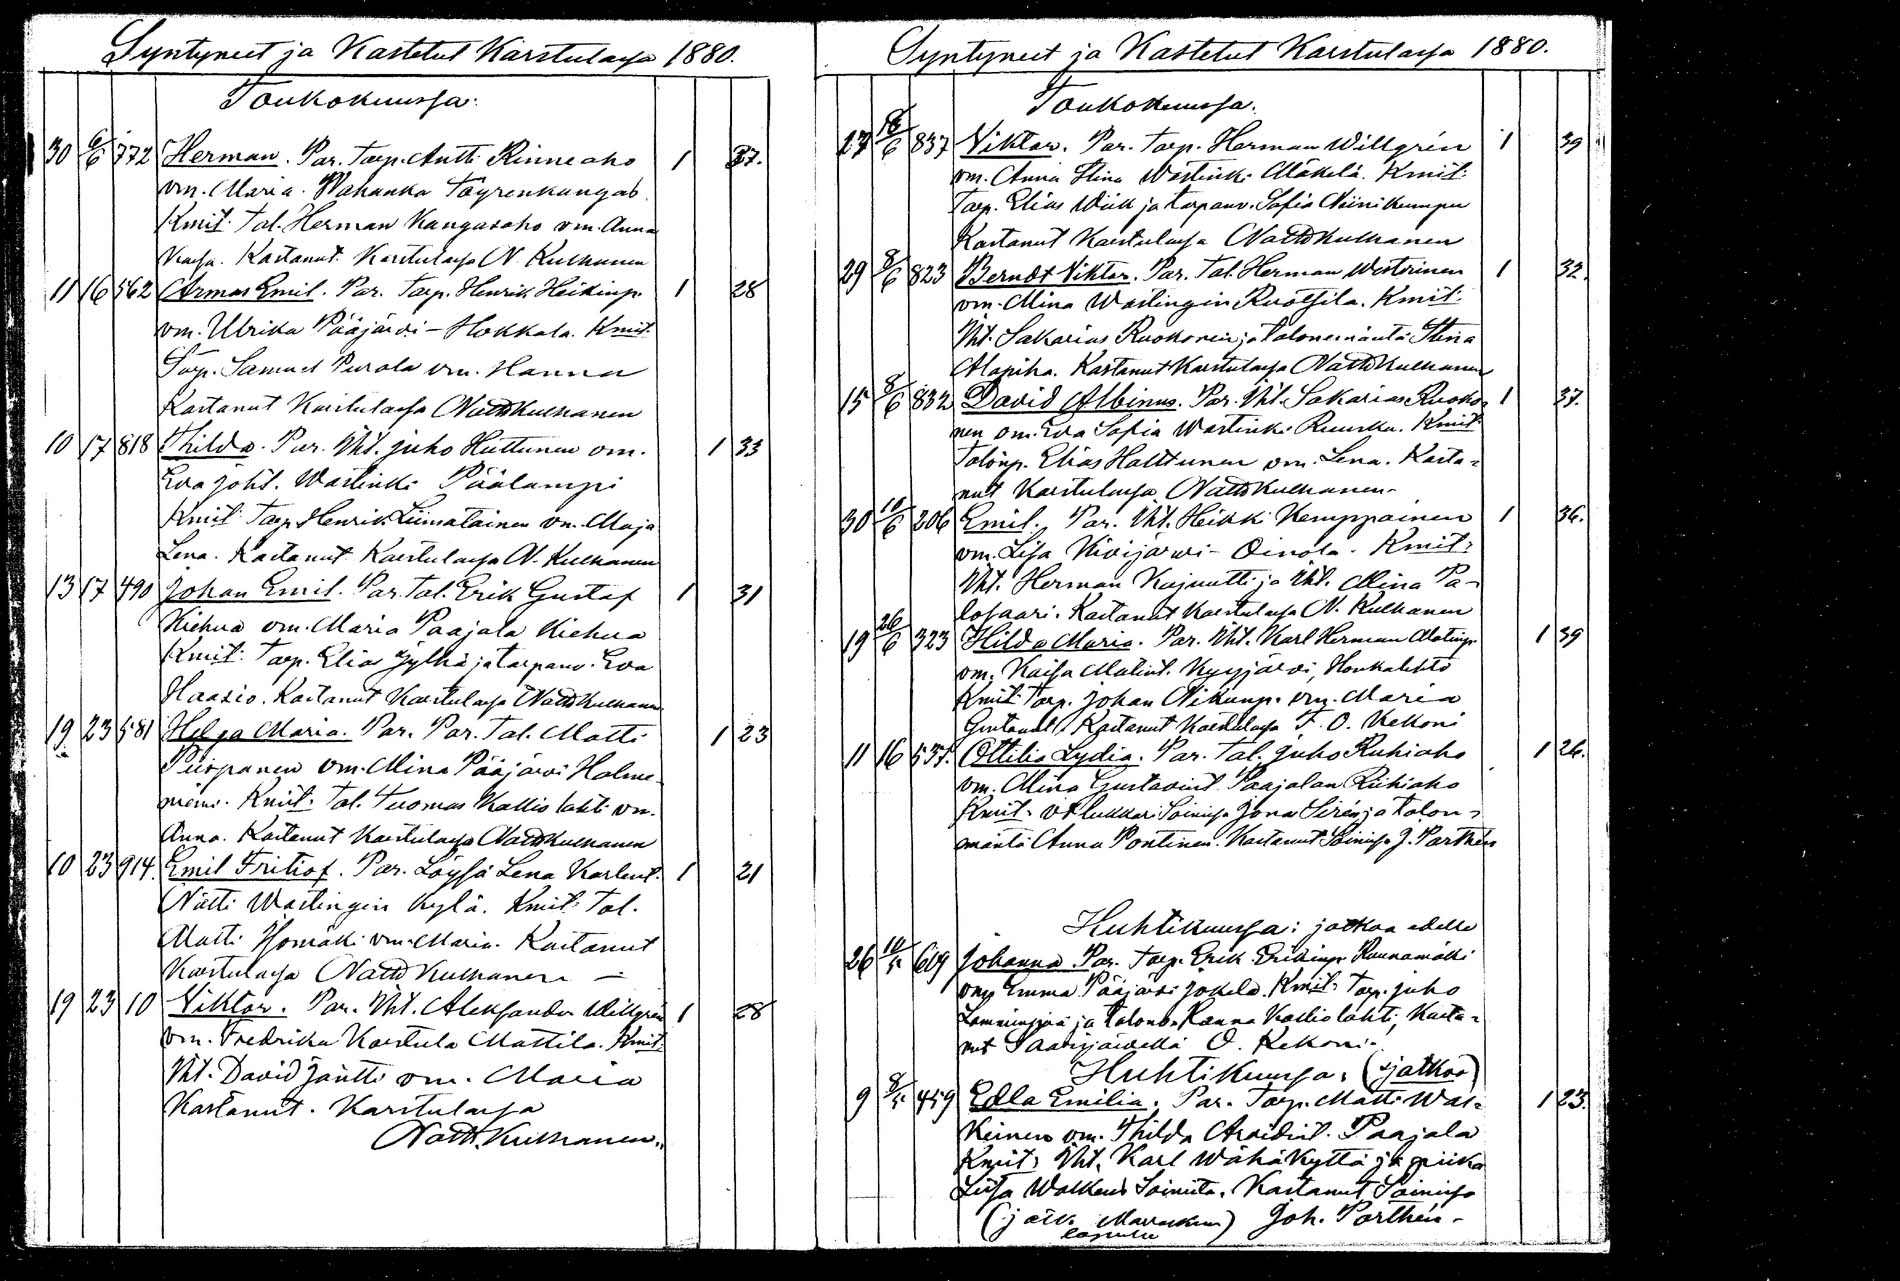 Syntyneet ja Kastetut Karstulassa 1880.
Toukokuussa:
30 6/6 772 Herman. Par. Torp. Antti Rinneaho 1 37.
vm. Maria. Wahanka Töyrenkangas.
Kmit: Tal. Herman Kangasaho vm. Anna
Kaisa. Kastanut Karstulassa N. Kulhanen
11 16 562 Armas Emil. Par. Torp. Henrik Heikinp. 1 28
vm. Ulrika Pääjärvi - Hokkala. Kmit:
Torp. Samuel Purola vm. Hanna
Kastanut Karstulassa Natth Kulhanen
10 17 818 Thilda. Par. Iht. Juho Huttunen vm. 1 33
Eva Joht. Wastinki Päälampi
Kmit: Torp. Henrik Liimatainen vm. Maja
Lena. Kastanut Karstulassa N. Kulhanen
13 17 490 Johan Emil. Par. Tal. Erik Gustaf 1 31
Kiehua vm. Maria Paajala Kiehua
Kmit: Torp. Elia Jylhä ja torpanv. Eva
Haasio. Kastanut Karstulassa Natth Kulhanen
19 23 581 Helga Maria. Par. Par. Tal. Matti 1 23
Piispanen vm. Mina Pääjärvi Holme-
niemi. Kmit: Tal. Tuomas Kalliolahti vm.
Anna. Kastanut Karstulassa Natth Kulhanen
10 23 914. Emil Fritiof. Par. Löysä Lena Karlint. 1 21
Nätti Wastingin kylä. Kmit: Tal.
Matti Isomäki vm. Maria. Kastanut
Karstulassa Natth Kulhanen -
19 23 10 Viktor. Par. Iht. Aleksander Willgrén 1 28
vm. Fredrika Karstula Mattila. Kmit:
Iht. David Jäntti vm. Maria
Kastanut. Karstulassa
Natth. Kulhanen.
Syntyneet ja Kastetut Karstulassa 1880.
Toukokuussa.
27 /6 837 Viktor. Par. Torp. Herman Willgrén 1 39
vm. Anna Stina Wastinki Mäkelä. Kmit:
Torp. Elias Wiik ja torpanv. Sofia Niinikumpu
Kastanut Karstulassa Natth Kulhanen
29 8/6 823 Berndt Viktor. Par. Tal. Herman Westerinen 1 32.
vm. Mina Wastingin Ruotsila. Kmit:
Iht. Sakarias Ruokonen ja talonemäntä Stina
Alapiha. Kastanut Karstulassa Natth Kulhanen
15 8/6 832 David Albinus. Par. Iht. Sakarias Ruoko- 1 37.
nen vm. Eva Sofia Wastinki Ruuska. Kmit:
Talonp. Elias Halttunen vm. Lena. Kasta-
nut Karstulassa Natth Kulhanen.
30 10/6 206 Emil. Par. Iht. Heikki Kemppainen 1 36.
vm. Lisa Kivijärvi - Oinola. Kmit:
Iht. Herman Kajuutti ja Iht. Mina Pa-
losaari. Kastanut Karstulassa N. Kulhanen
19 26/6 323 Hilda Maria. Par. Iht. Karl Herman Matinp. 1 39
vm. Kaisa Matint. Kyyjärvi, Honkalehto
Kmit: Torp. Johan Nikunp. vm. Maria
Kastanut Karstulassa F. O. Kekoni
11 16 537. Ottilia Lydia. Par. Tal. Juho Riihiaho 1 26.
vm. Mina Gustavint. Paajalan Riihiaho
Kmit: vt lukkari Soinissa Jona Sirén ja talon-
emäntä Anna Pontinen. Kastanut Soinissa J. Parthén
Huhtikuussa: jatkoa edelle
26 10/5 609 Johanna. Par. Torp. Erik Erikinp. Rannamäki
vmo Emma Pääjärvi Jokela. Kmit: Torp. Juho
Lamminpää ja talonv. Hanna Kalliolahti, Kasta-
nut Saarijärvellä O. Kekoni.
Huhtikuussa: (jatkoa)
9 8/5 459 Edla Emilia. Par. Torp. Matti Wal- 1 23.
keinen vm. Thilda Arvidint. Paajala
Kmit: Iht. Karl Wähäkyttä ja piika
Liisa Walkend Soinista. Kastanut Soinissa
(jatk. Marraskuun) Joh. Parthén.
lopulla